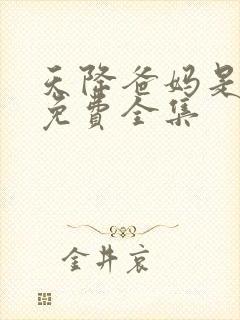 天降爸妈是
免費全集
金井哀